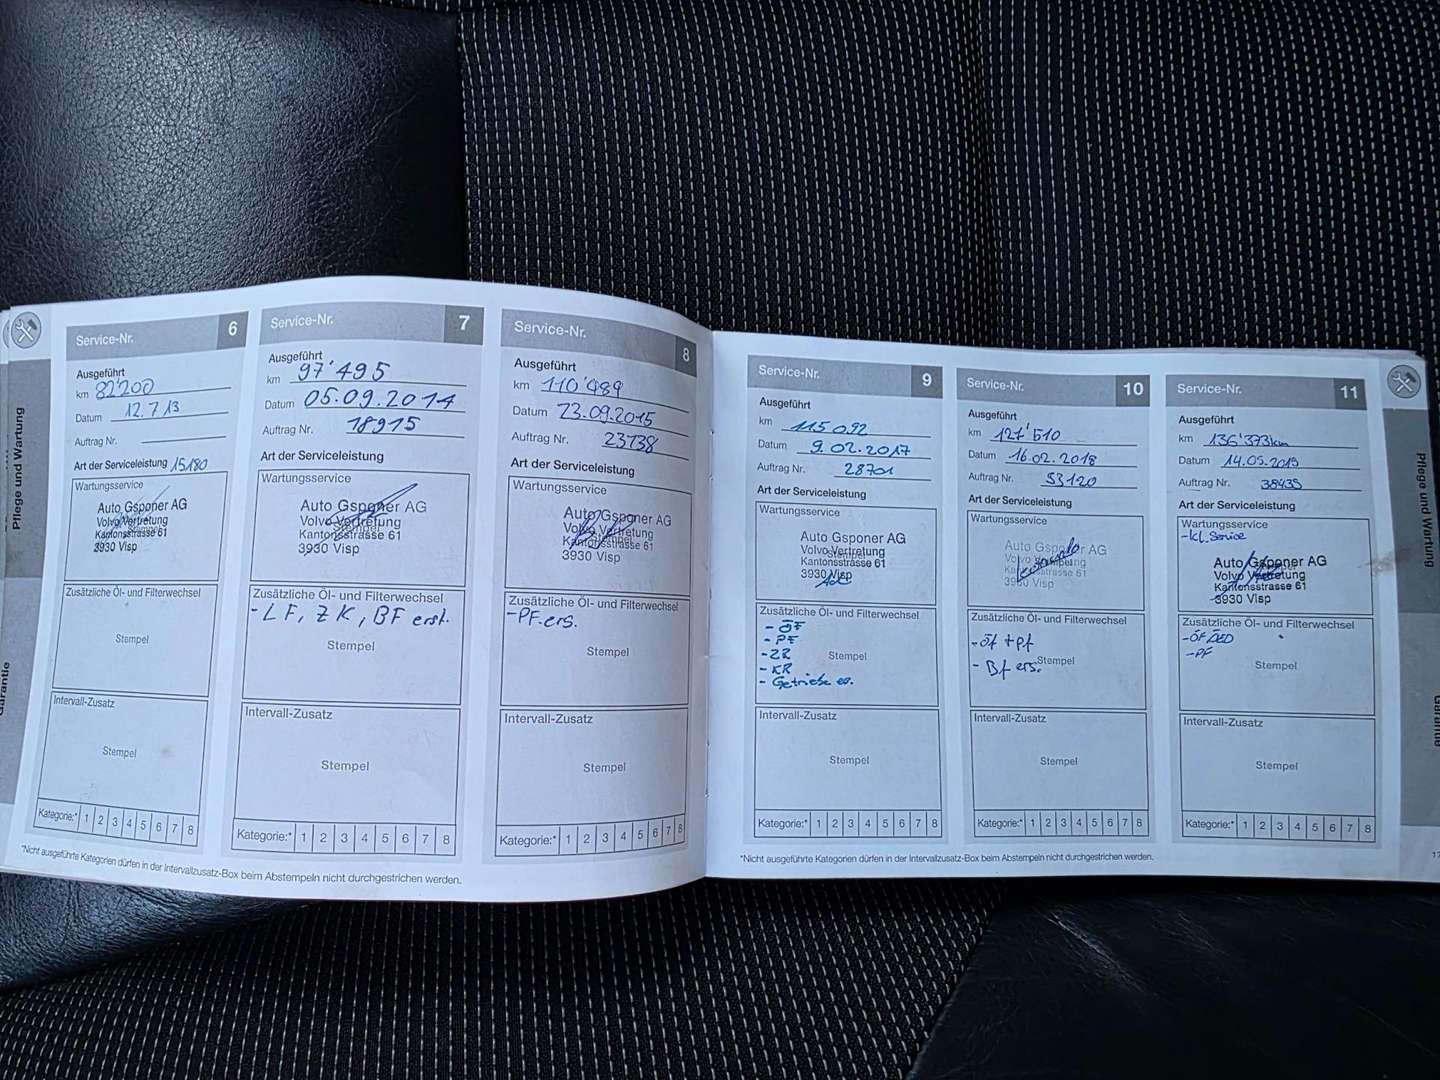 Pflege und Wartung
Garantie
Service-Nr. 6
Ausgeführt
km 82'200
Datum 12.7.13
Auftrag Nr.
Art der Serviceleistung 15180
Wartungsservice
Auto Gsponer AG
Volvo Vertretung
Kantonsstrasse 61
3930 Visp
Zusätzliche Öl- und Filterwechsel
Stempel
Intervall-Zusatz
Stempel
Kategorie:* 1 2 3 4 5 6 7 8
Service-Nr. 7
Ausgeführt
km 97'495
Datum 05.09.2014
Auftrag Nr. 18915
Art der Serviceleistung
Wartungsservice
Auto Gsponer AG
Volvo Vertretung
Stempel
Kantonsstrasse 61
3930 Visp
Zusätzliche Öl- und Filterwechsel
- LF, ZK, BF erst.
Stempel
Intervall-Zusatz
Stempel
Kategorie:* 1 2 3 4 5 6 7 8
Service-Nr. 8
Ausgeführt
km 110'489
Datum 23.09.2015
Auftrag Nr. 23138
Art der Serviceleistung
Wartungsservice
Auto Gsponer AG
Volvo Vertretung
Kantonsstrasse 61
3930 Visp
Zusätzliche Öl- und Filterwechsel
- PF. ers.
Stempel
Intervall-Zusatz
Stempel
Kategorie:* 1 2 3 4 5 6 7 8
*Nicht ausgeführte Kategorien dürfen in der Intervallzusatz-Box beim Abstempeln nicht durchgestrichen werden.
Service-Nr. 9
Ausgeführt
km 115092
Datum 9.02.2017
Auftrag Nr. 28701
Art der Serviceleistung
Wartungsservice
Auto Gsponer AG
Volvo Vertretung
Kantonsstrasse 61
3930 Visp
Zusätzliche Öl- und Filterwechsel
- ÖF
- PF
- ZR
- KR
- Getriebe
Stempel
Intervall-Zusatz
Stempel
Kategorie:* 1 2 3 4 5 6 7 8
Service-Nr. 10
Ausgeführt
km 121'510
Datum 16.02.2018
Auftrag Nr. 53120
Art der Serviceleistung
Wartungsservice
Auto Gsponer AG
Volvo Vertretung
Kantonsstrasse 61
3930 Visp
Zusätzliche Öl- und Filterwechsel
- Öf + Pf
- Bf ers.
Stempel
Intervall-Zusatz
Stempel
Kategorie:* 1 2 3 4 5 6 7 8
Service-Nr. 11
Ausgeführt
km 136'373km
Datum 14.05.2019
Auftrag Nr. 38435
Art der Serviceleistung
Wartungsservice
- kl. Service
Auto Gsponer AG
Volvo Vertretung
Kantonsstrasse 61
3930 Visp
Zusätzliche Öl- und Filterwechsel
- ÖF
- PF
Stempel
Intervall-Zusatz
Stempel
Kategorie:* 1 2 3 4 5 6 7 8
*Nicht ausgeführte Kategorien dürfen in der Intervallzusatz-Box beim Abstempeln nicht durchgestrichen werden.
Pflege und Wartung
Garantie